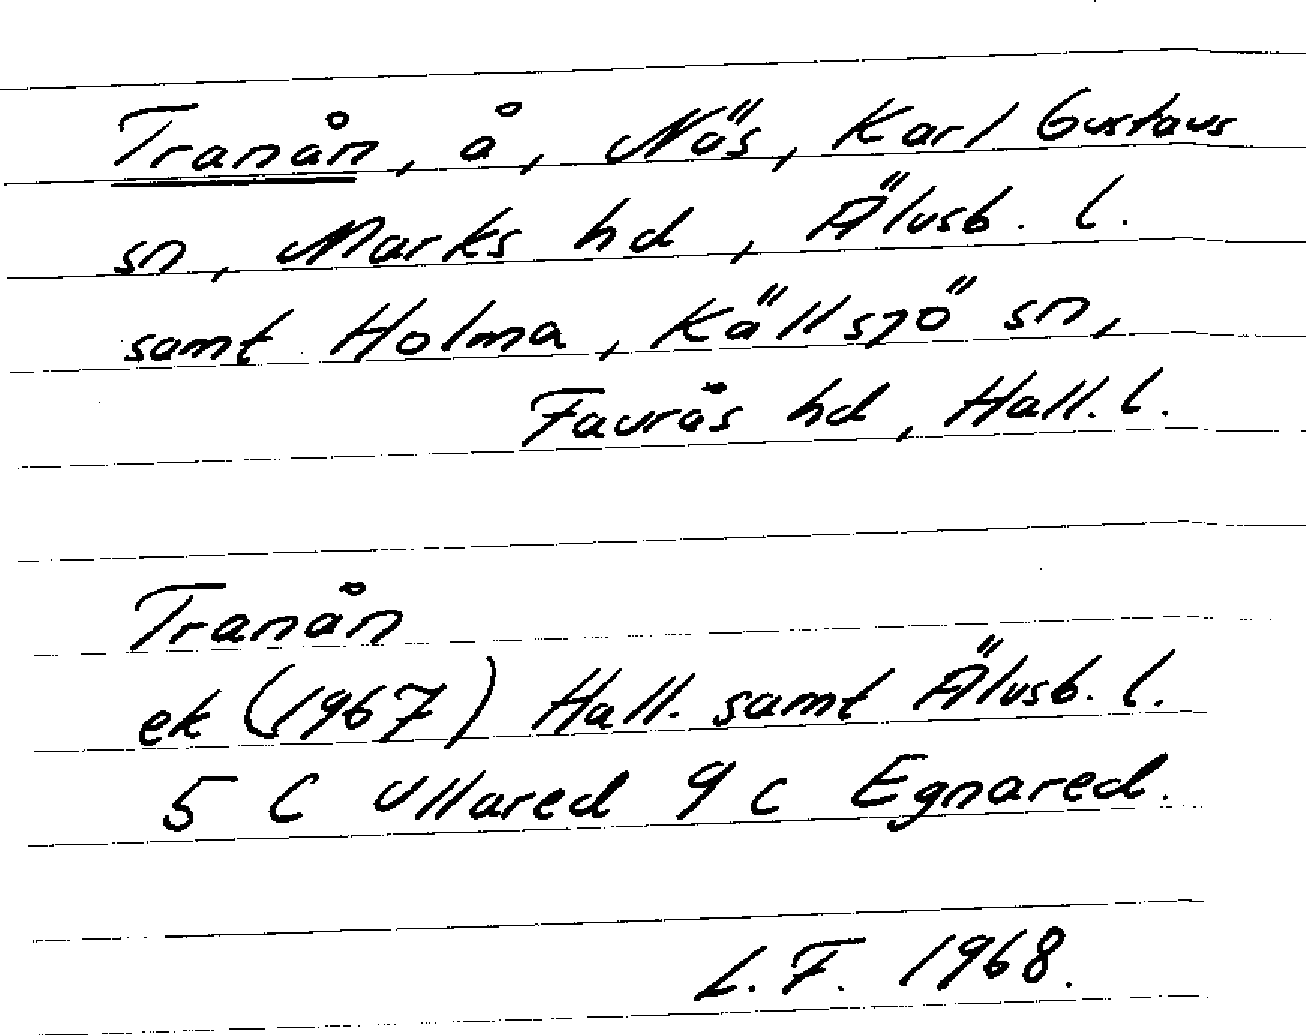 Tranån, å, Näs, Karl Gustavs
sn, Marks hd, Älvsb. l.
samt Holma, Källsjö sn,
Faurås hd, Hall. l.
Tranån
ek (1967) Hall. samt Älvsb. l.
5 C Ullared 9 c Egnared.
L.F. 1968.